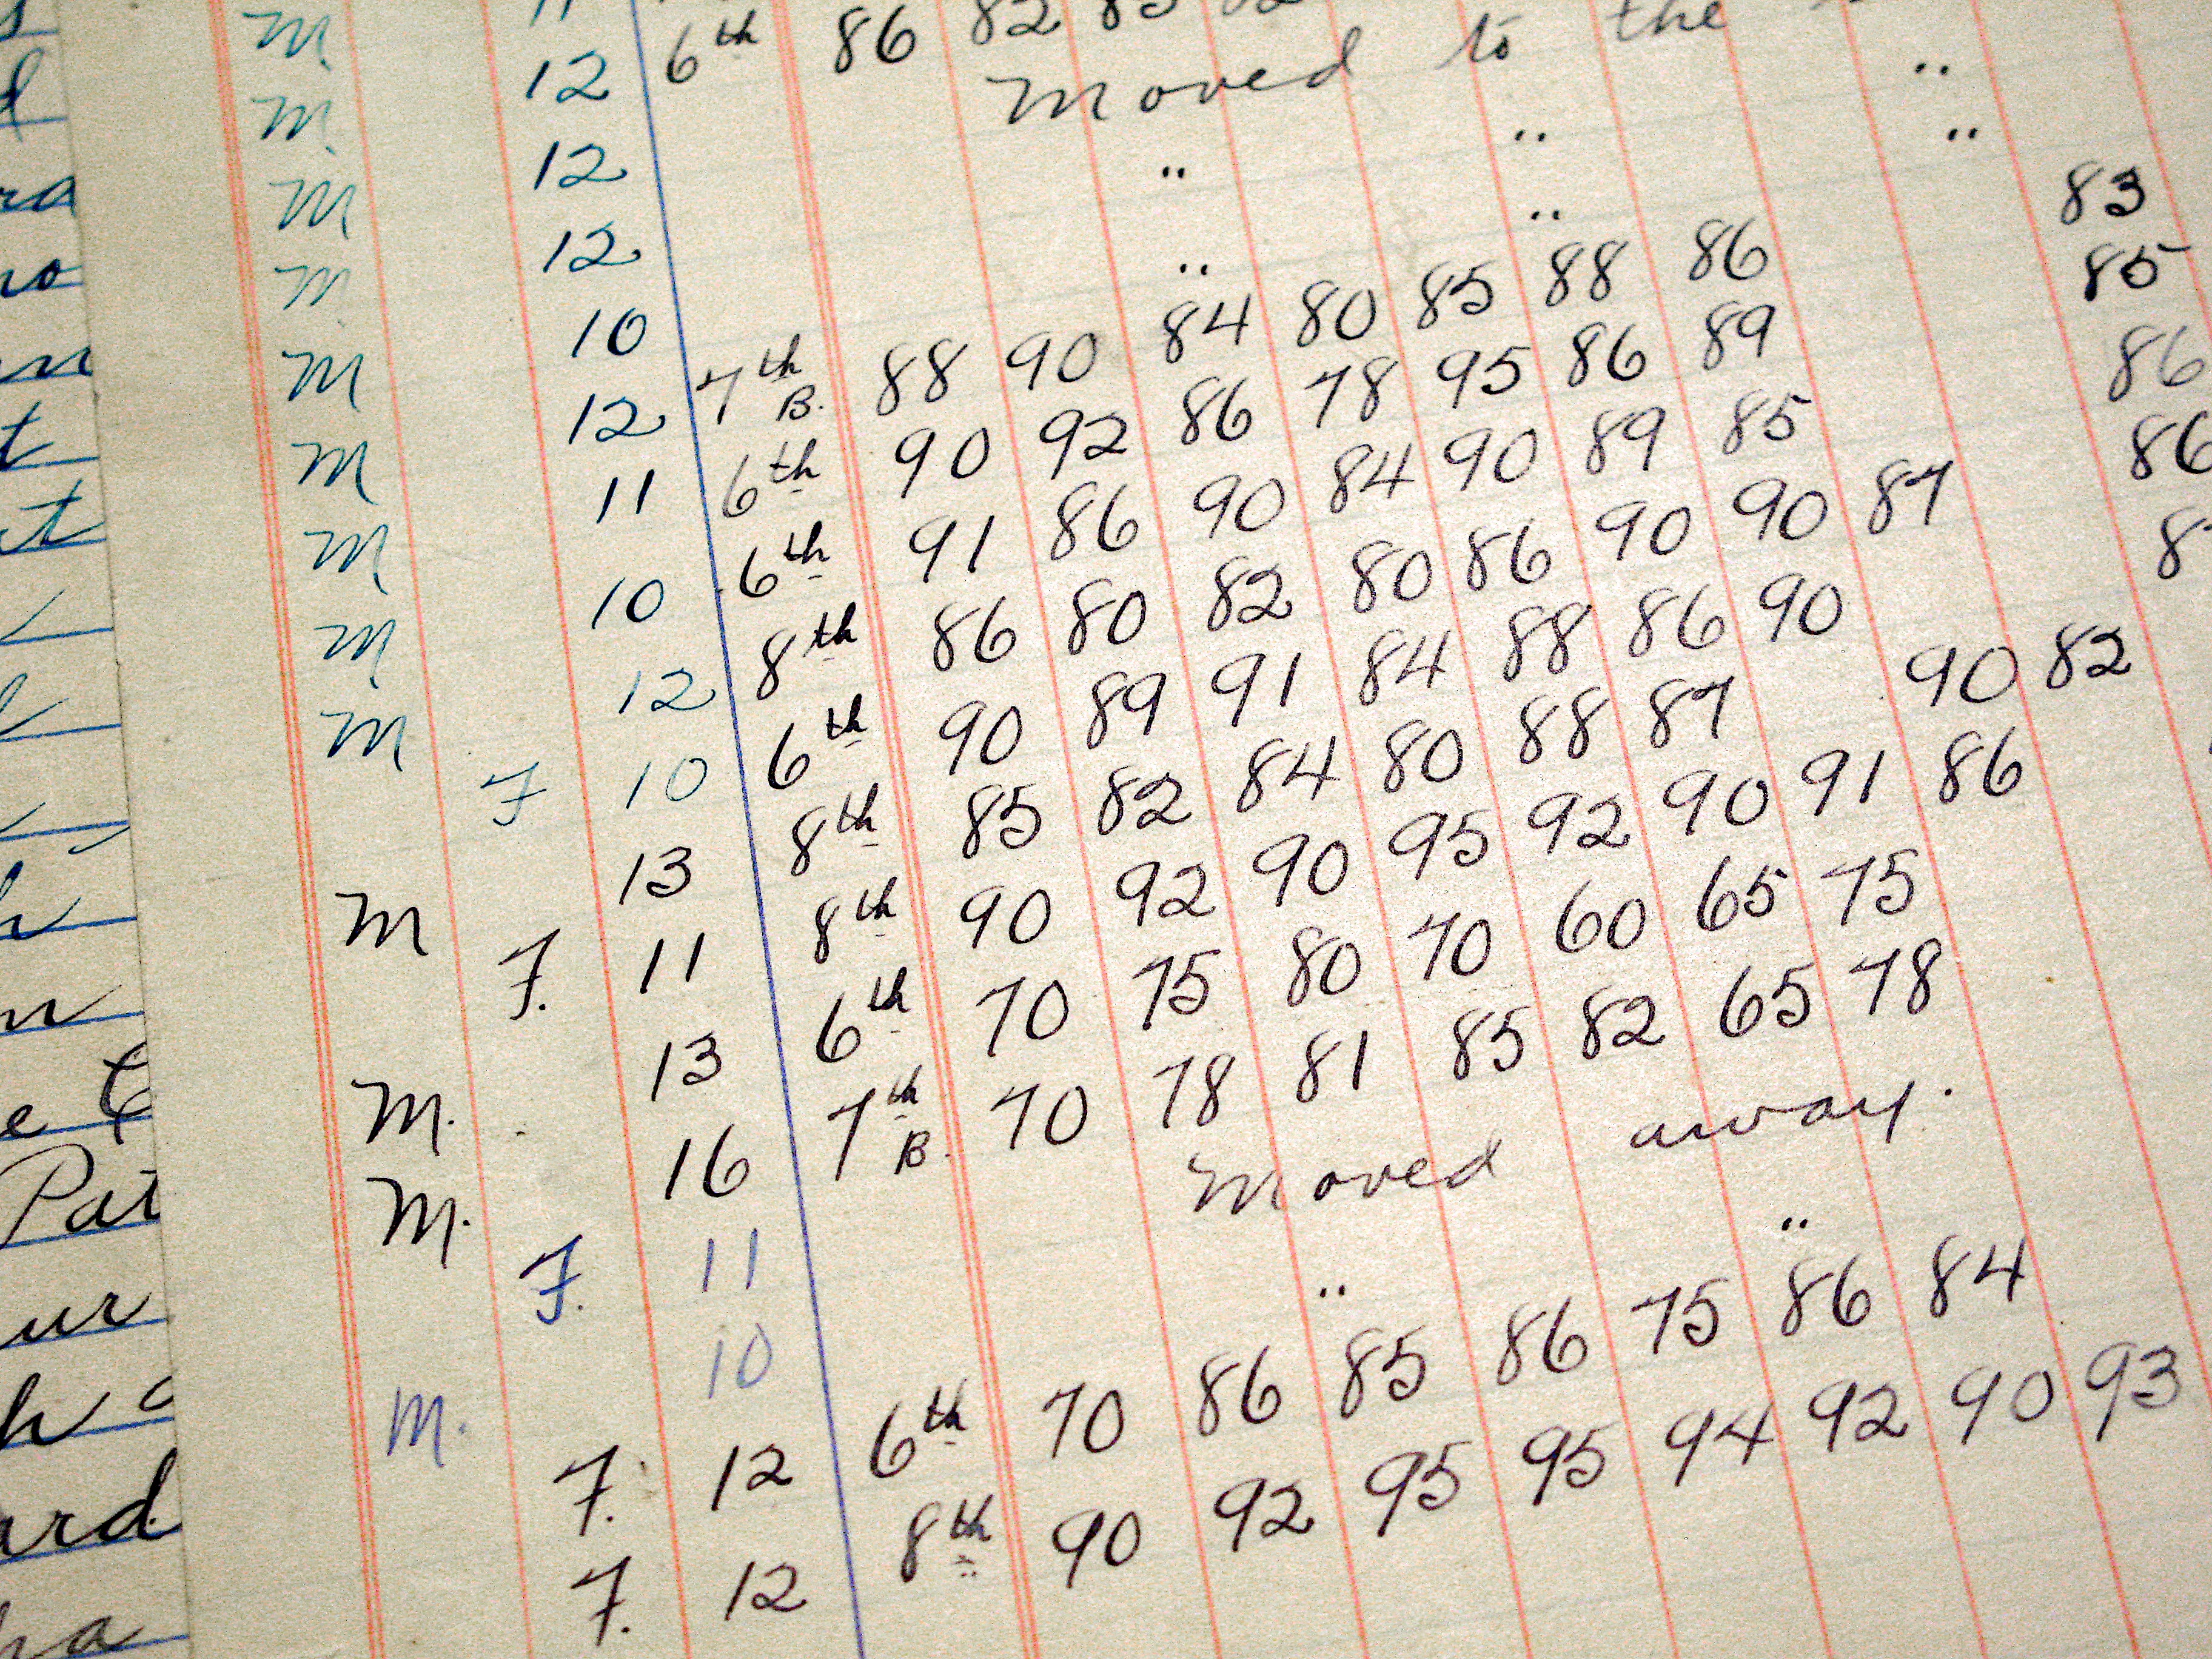 M.
M. 12 6th 86 82
M 12 Moved to the
M 12 " " "
M 10 " " "
M 12 7th B. 88 90 84 80 85 88 86 83
M 11 6th 90 92 86 78 95 86 89 85
M 10 6th 91 86 90 84 90 89 85 86
M 12 8th 86 80 82 80 86 90 90 87 86
F 10 6th 90 89 91 84 88 86 90
M 13 8th 85 82 84 80 88 87 90 82
F. 11 8th 90 92 90 95 92 90 91 86
M. 13 6th 70 75 80 70 60 65 75
M. 16 7th B. 70 78 81 85 82 65 78
F. 11 Moved away.
M. 10 " "
F. 12 6th 70 86 85 86 75 86 84
F. 12 8th 90 92 95 95 94 92 90 93